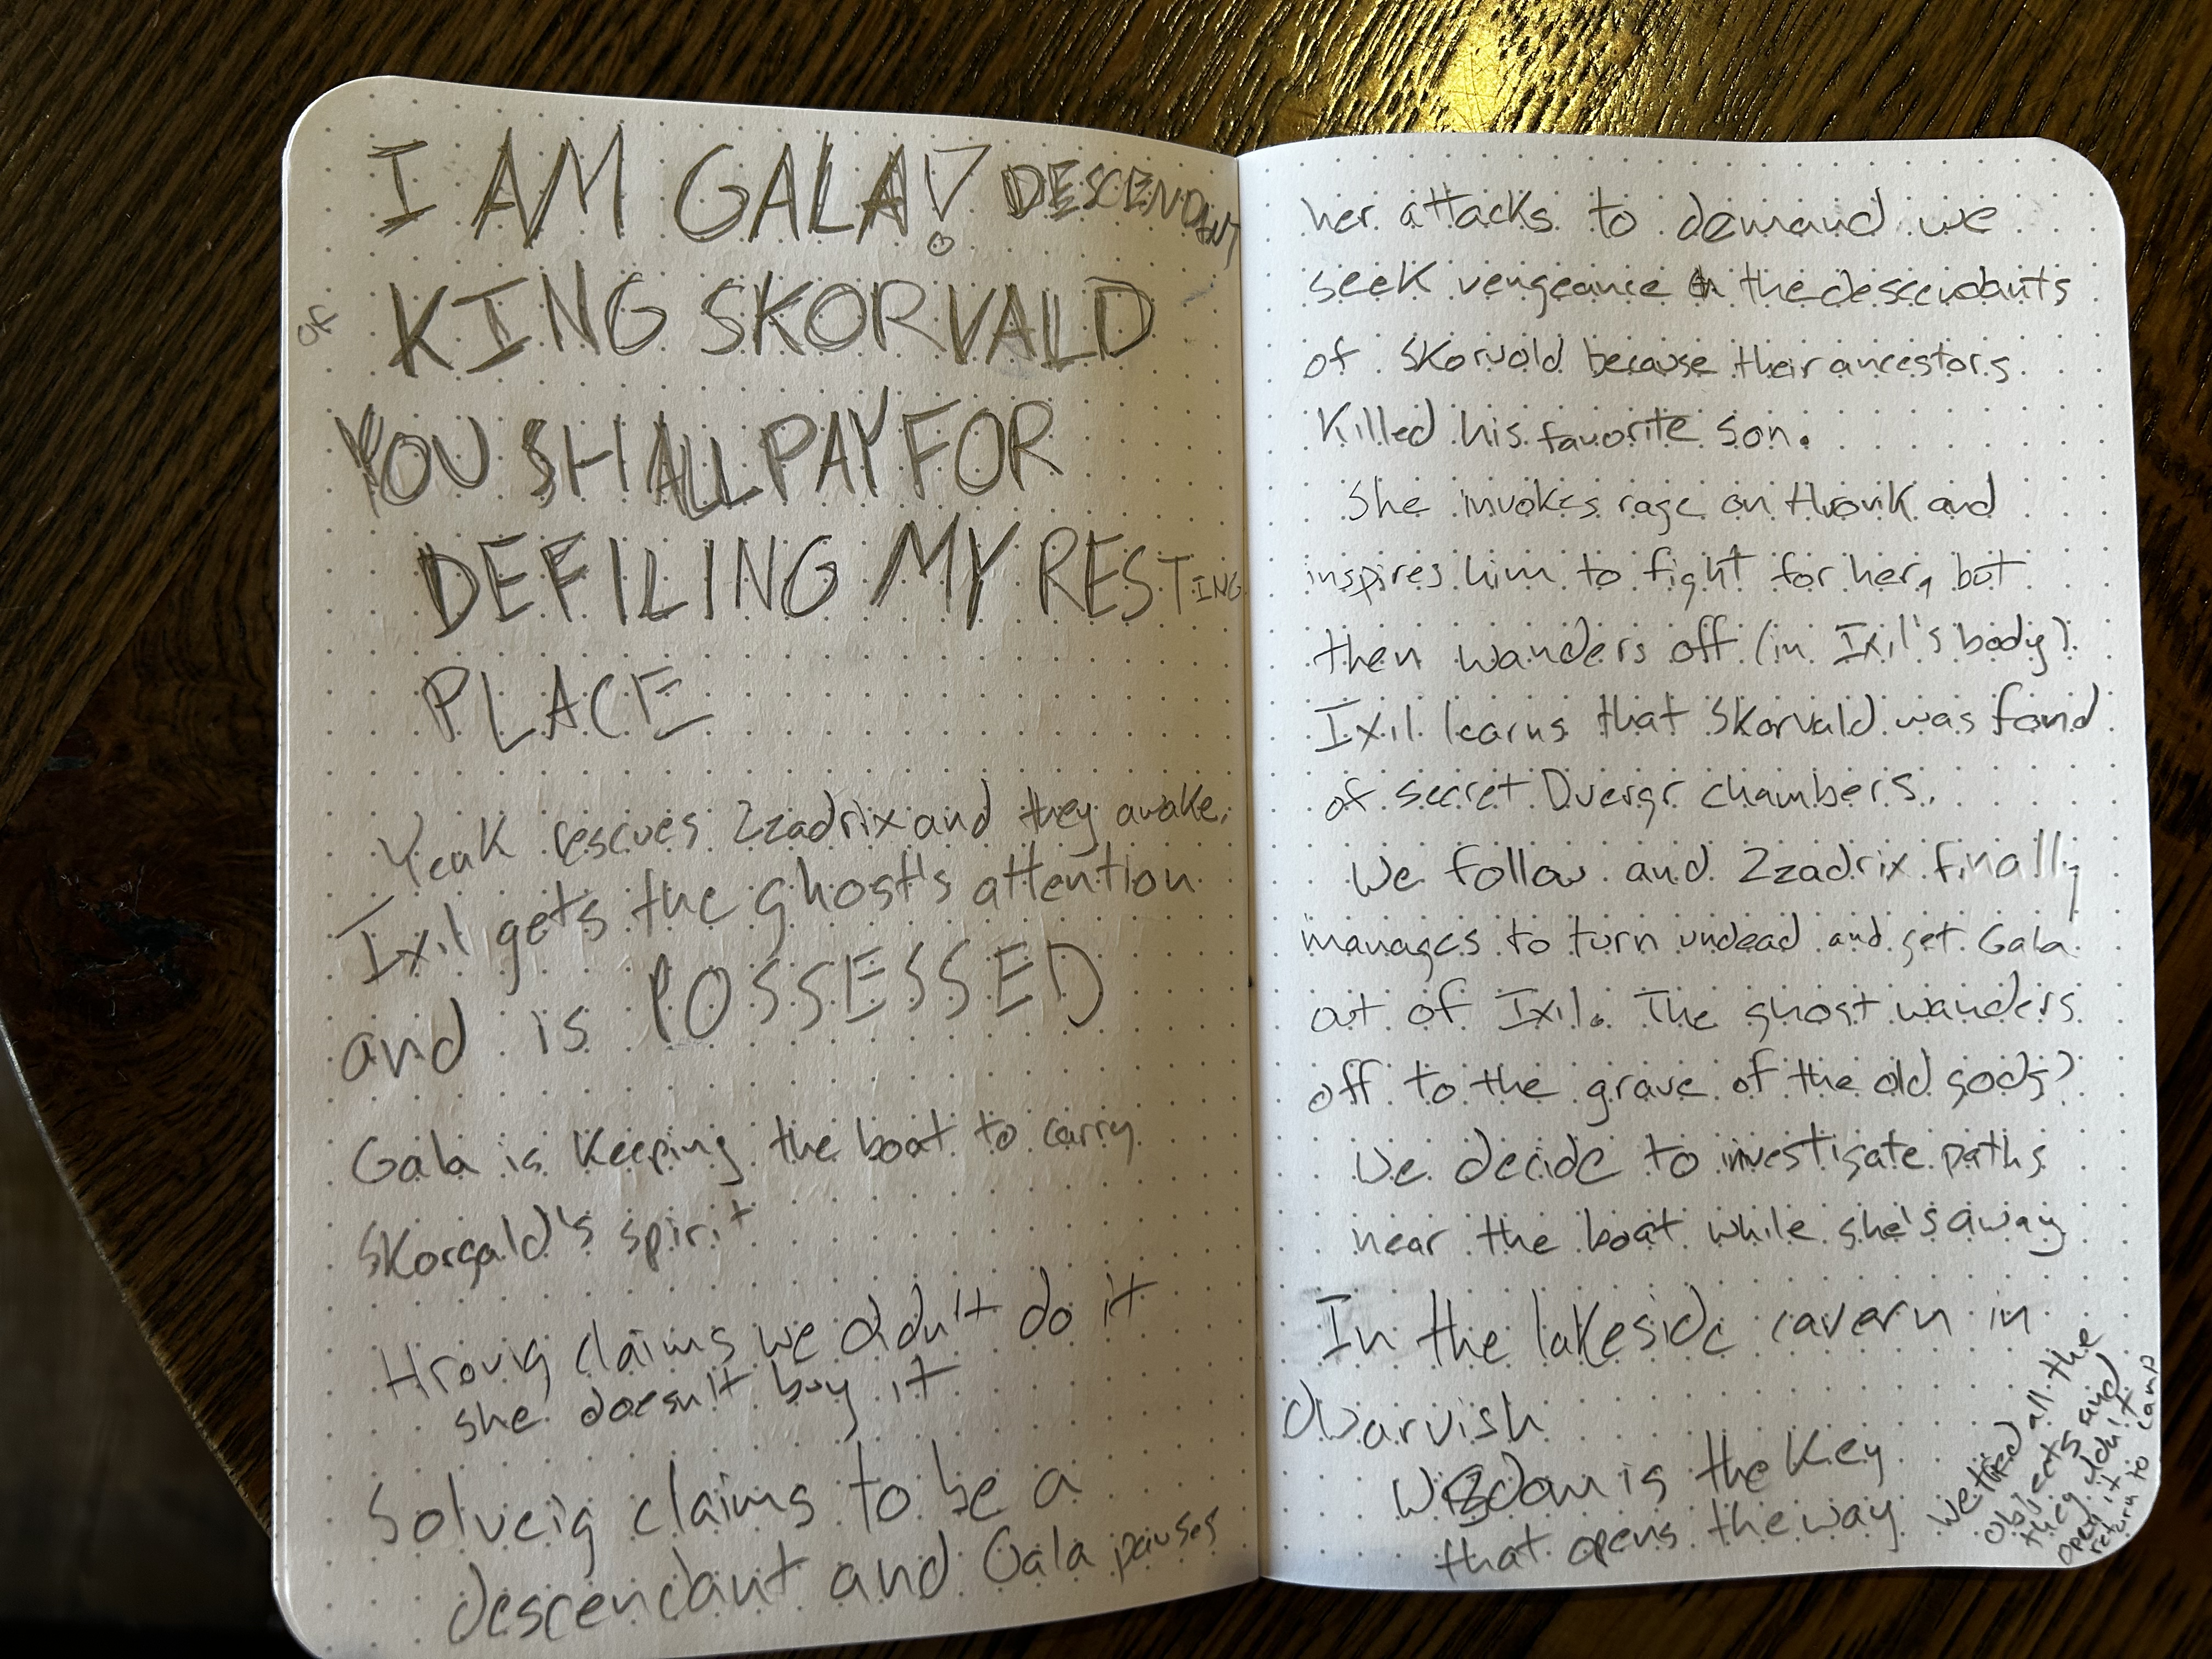 I AM GALA! DESCENDANT
of KING SKORVALD
YOU SHALL PAY FOR
DEFILING MY RESTING
PLACE
Yeak rescues Zzadrix and they awake.
Ixil gets the ghost's attention
and is POSSESSED
Gala is keeping the boat to carry
Skorgald's spirit
Hrovig claims we didn't do it
she doesn't buy it
Solveig claims to be a
descendant and Gala pauses
her attacks to demand we
seek vengeance on the descendants
of Skorvald because their ancestors
killed his favorite son.
She invokes rage on Hrovik and
inspires him to fight for her, but
then wanders off (in Ixil's body).
Ixil learns that Skorvald was fond
of secret Duergr chambers.
We follow and Zzadrix finally
manages to turn undead and get Gala
out of Ixil. The ghost wanders
off to the grave of the old gods?
We decide to investigate paths
near the boat while she's away
In the lakeside cavern in
Dwarvish
Wisdom is the key
that opens the way
We tried all the
objects and
they didn't
open it
return to camp